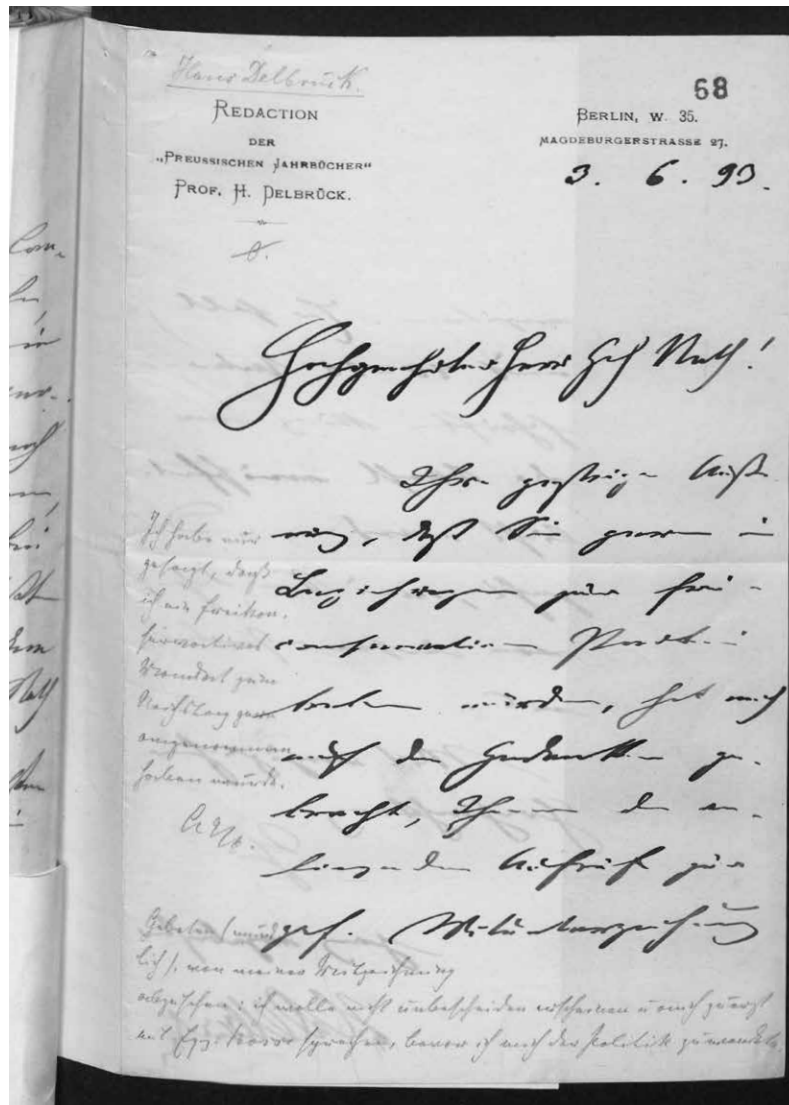 Hans Delbrück.
68
REDACTION
DER
„PREUSSISCHEN JAHRBÜCHER“
PROF. H. DELBRÜCK.
BERLIN, W. 35.
MAGDEBURGERSTRASSE 27.
3. 6. 93.
Hochgeehrter Herr Geh Rath!
Ihre gestrige Äuße
rung, daß Sie gern in
Beziehungen zur frei-
conservativen Partei
treten würden, hat mich
auf den Gedanken ge-
bracht, Ihnen den an-
liegenden Aufruf zur
gef. Mitunterzeichnung
Ich habe nur
gesagt, daß
ich ein freikon.
servatives
Mandat zum
Reichstag gern
angenommen
haben würde.
Gebeten (münd
lich), von meiner Mitzeichnung
abzusehen; ich wolle nicht unbescheiden erscheinen u mich zuerst
mit Exz. sprechen, bevor ich mich der Politik zuwendete.